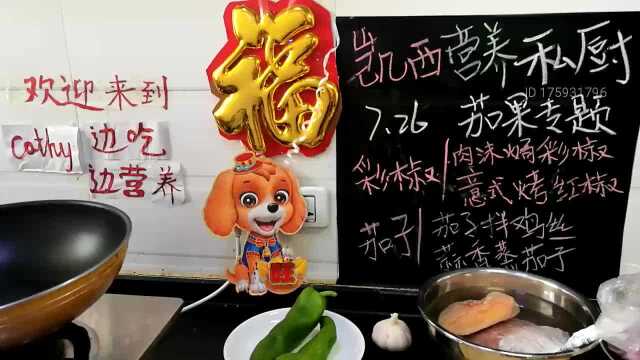 欢迎来到
Cathy 边吃
边营养
福
旺
凯西营养私厨
ID 175931796
7.26 茄果专题
彩椒
肉沫焗彩椒
意式烤红椒
茄子
茄子拌鸡丝
蒜香蒸茄子